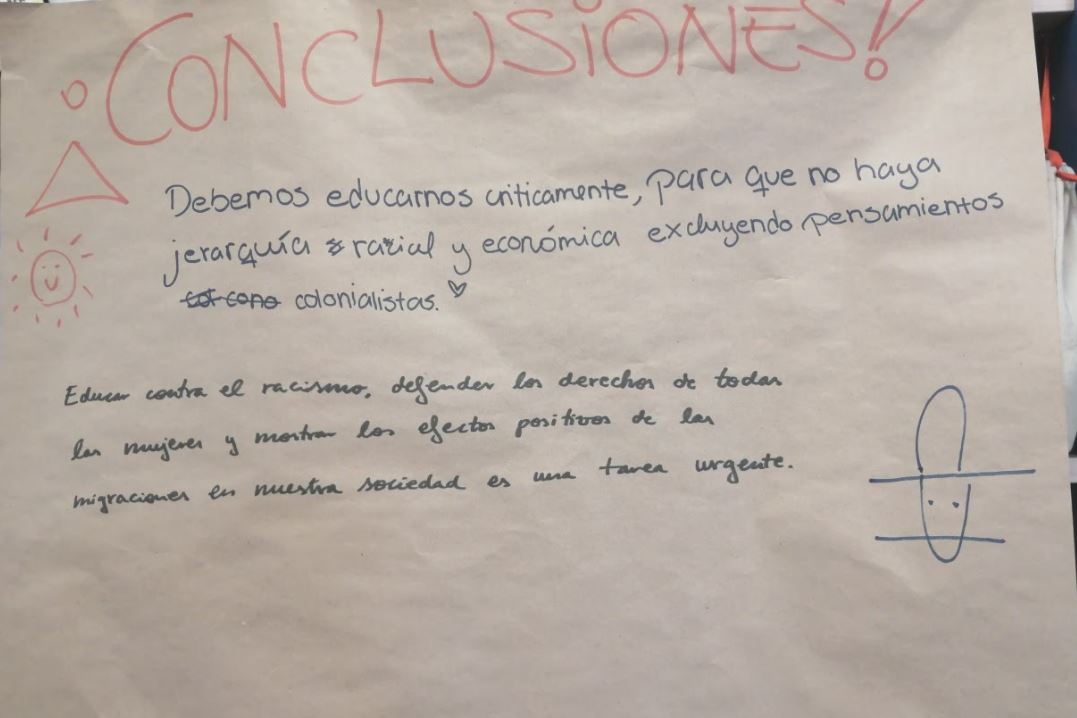 CONCLUSIONES!
Debemos educarnos criticamente, para que no haya
jerarquía racial y económica excluyendo pensamientos
colonialistas.
Educar contra el racismo, defender los derechos de todas
las mujeres y mostrar los efectos positivos de las
migraciones en nuestra sociedad es una tarea urgente.